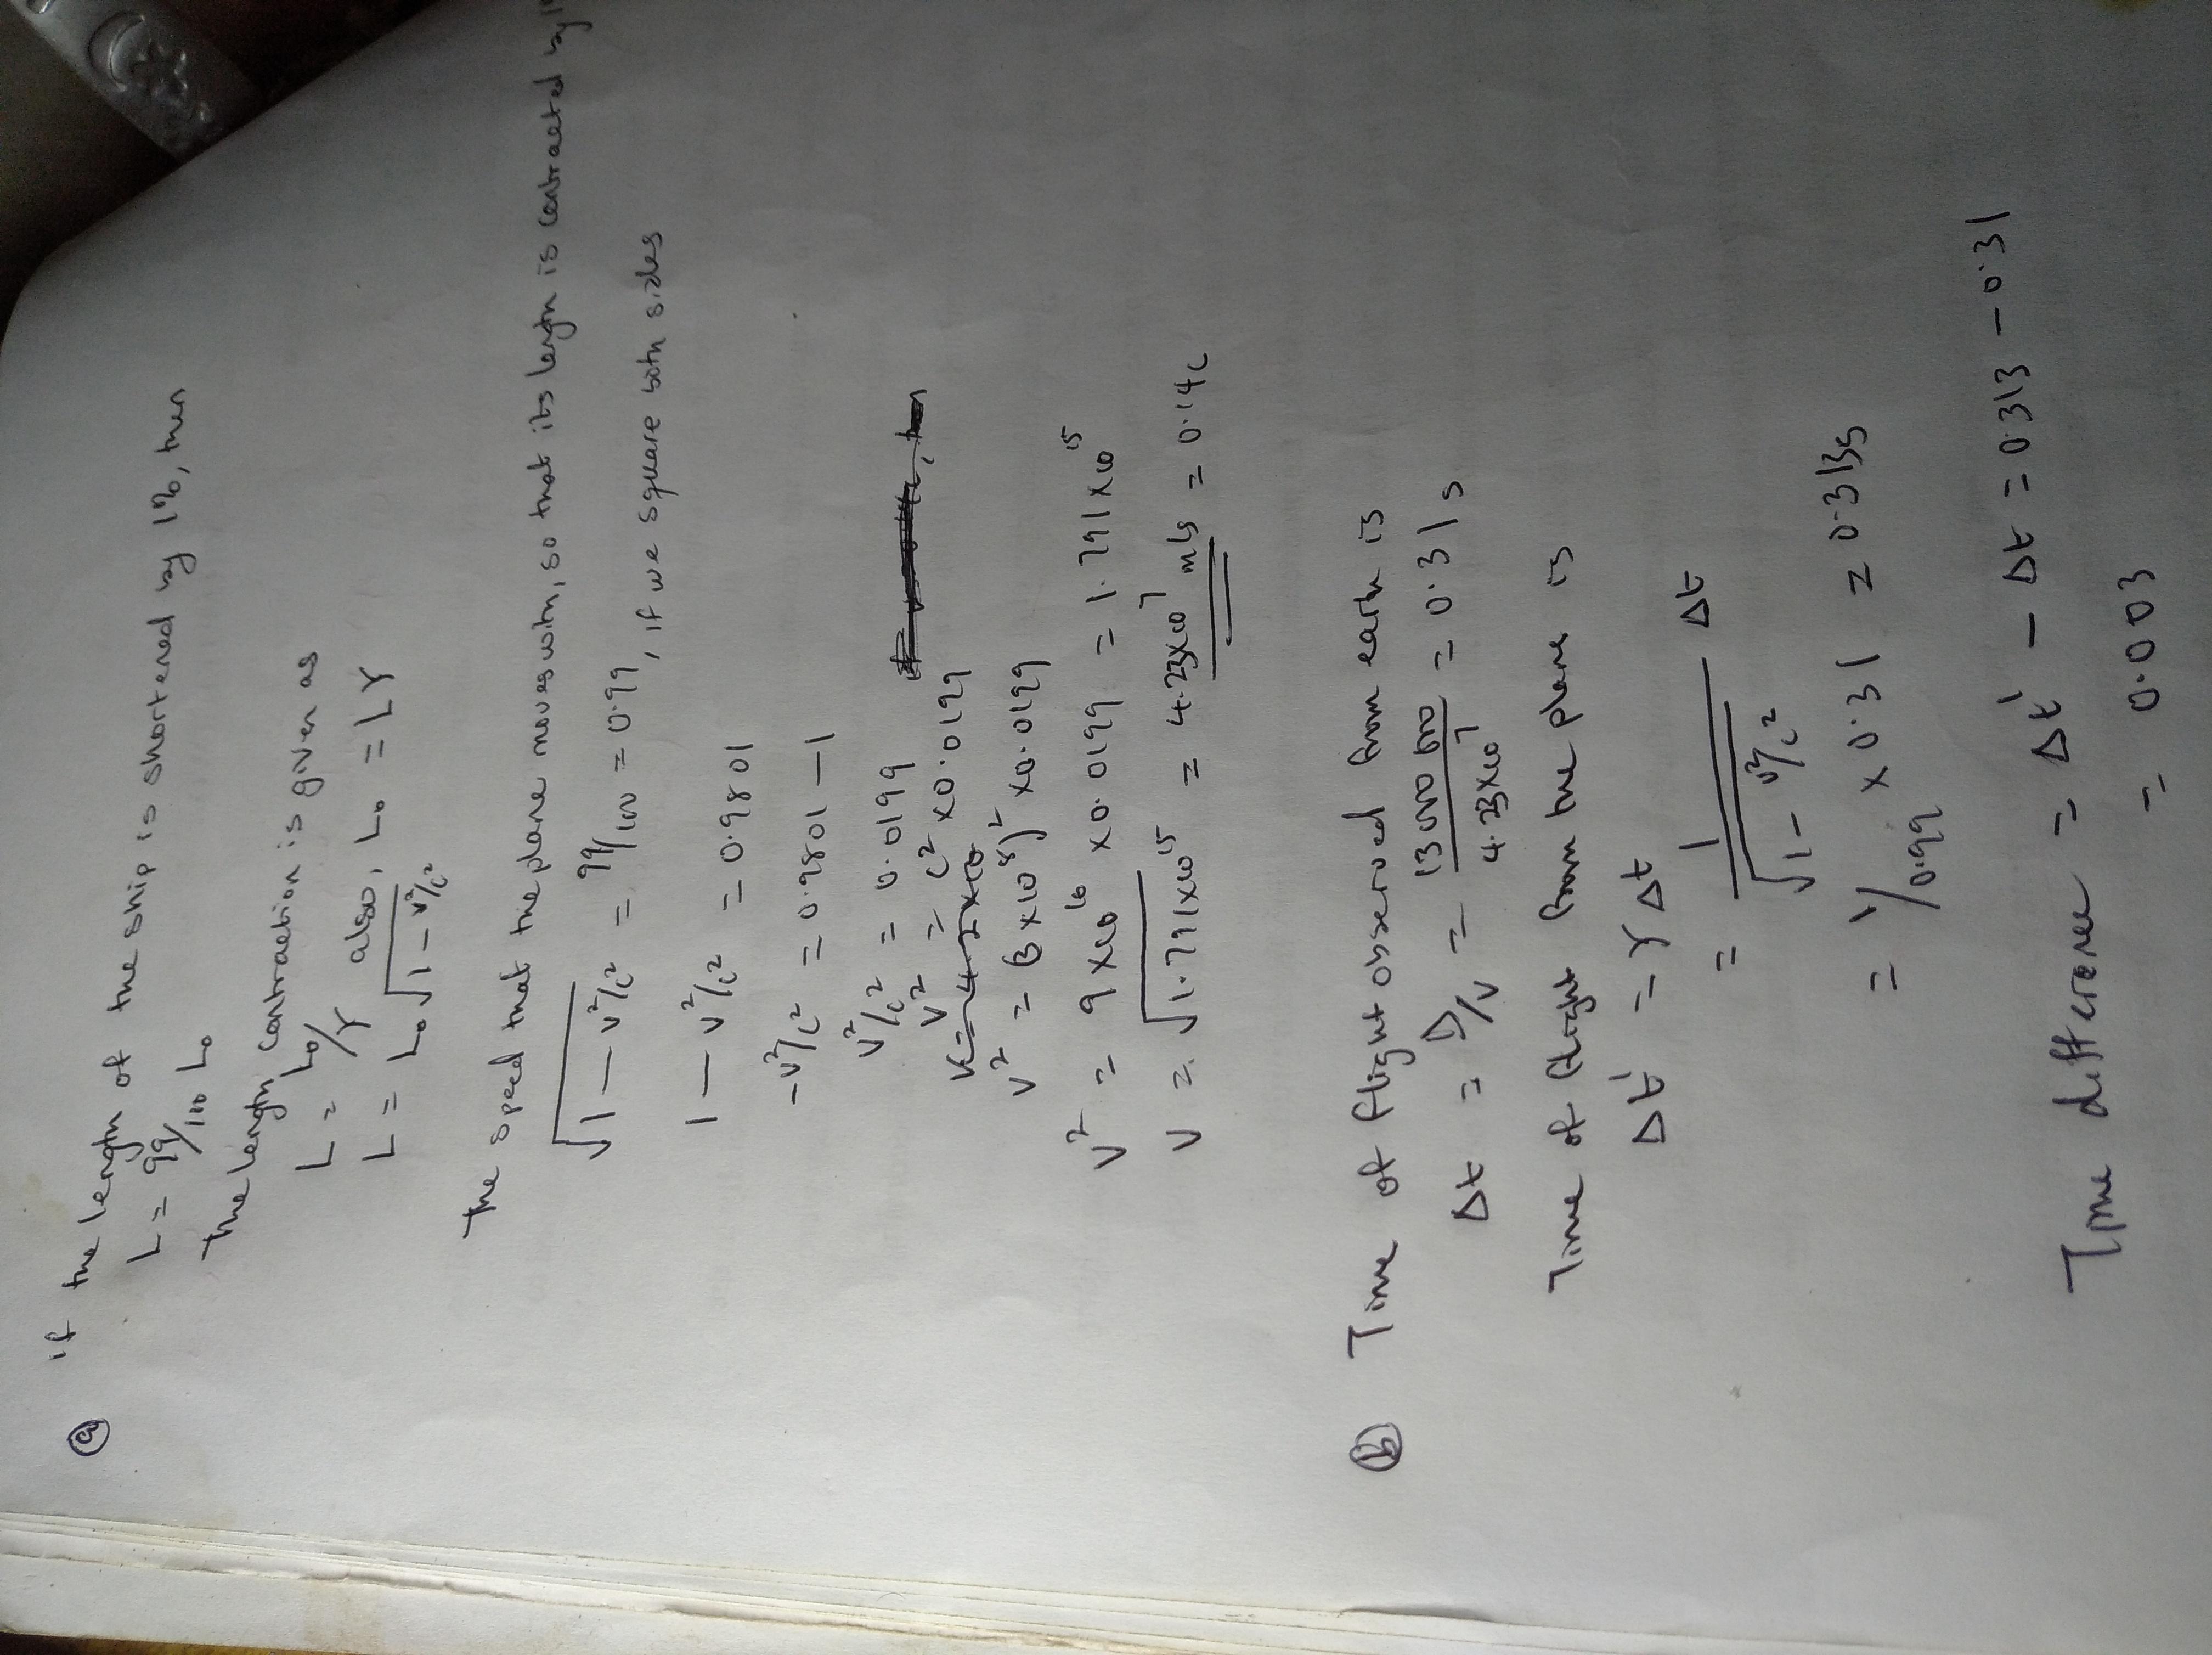 (a) If the length of the ship is shortened by 1%, then
L = 99/100 L₀
The length contraction is given as
L = L₀/γ also, L₀ = Lγ
L = L₀ √1 - v²/c²
The speed that the plane moves with, so that its length is contracted by
√1 - v²/c² = 99/100 = 0.99, if we square both sides
1 - v²/c² = 0.9801
-v²/c² = 0.9801 - 1
v²/c² = 0.0199
v² = c² x 0.0199
v² = (3 x 10⁸)² x 0.0199
v² = 9 x 10¹⁶ x 0.0199 = 1.791 x 10¹⁵
v = √1.791 x 10¹⁵ = 4.23 x 10⁷ m/s = 0.14c
(b) Time of flight observed from earth is
Δt = D/v = 13000 000 / 4.23 x 10⁷ = 0.31 s
Time of flight from the plane is
Δt' = γ Δt
= 1/√1 - v²/c² Δt
= 1/0.99 x 0.31 = 0.313s
Time difference = Δt' - Δt = 0.313 - 0.31
= 0.003